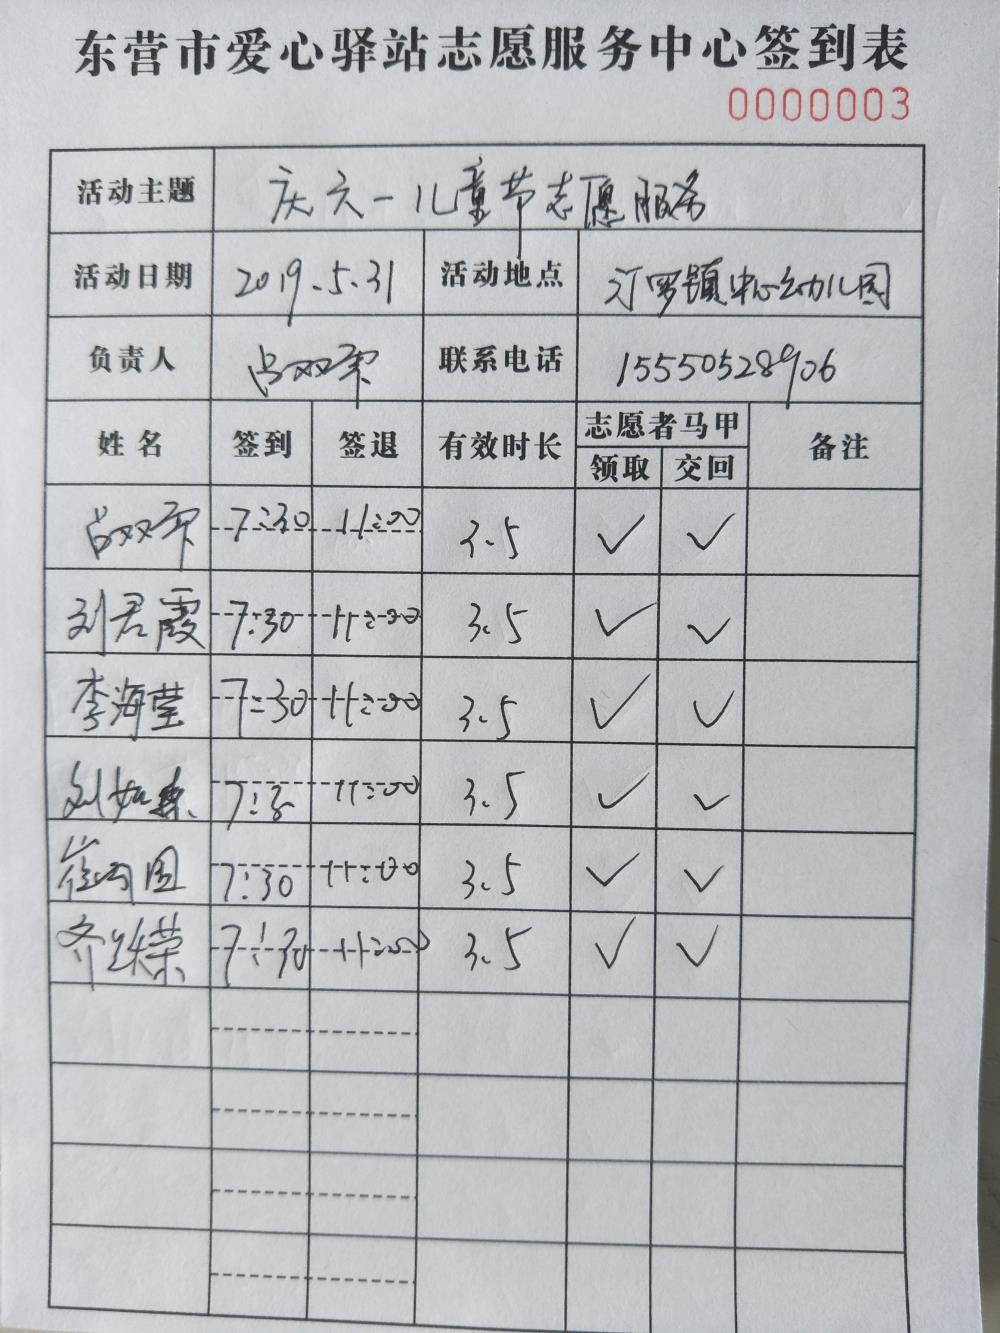 东营市爱心驿站志愿服务中心签到表
0000003
活动主题 庆六一儿童节志愿服务
活动日期 2019.5.31 活动地点 汀罗镇中心幼儿园
负责人 联系电话 15550528906
姓名 签到 签退 有效时长 志愿者马甲 备注
领取 交回
7:30 11:00 3.5 ✓ ✓
刘君霞 7:30 11:00 3.5 ✓ ✓
李海莹 7:30 11:00 3.5 ✓ ✓
刘如 11:00 3.5 ✓ ✓
7:30 11:00 3.5 ✓ ✓
荣 7:30 11:00 3.5 ✓ ✓